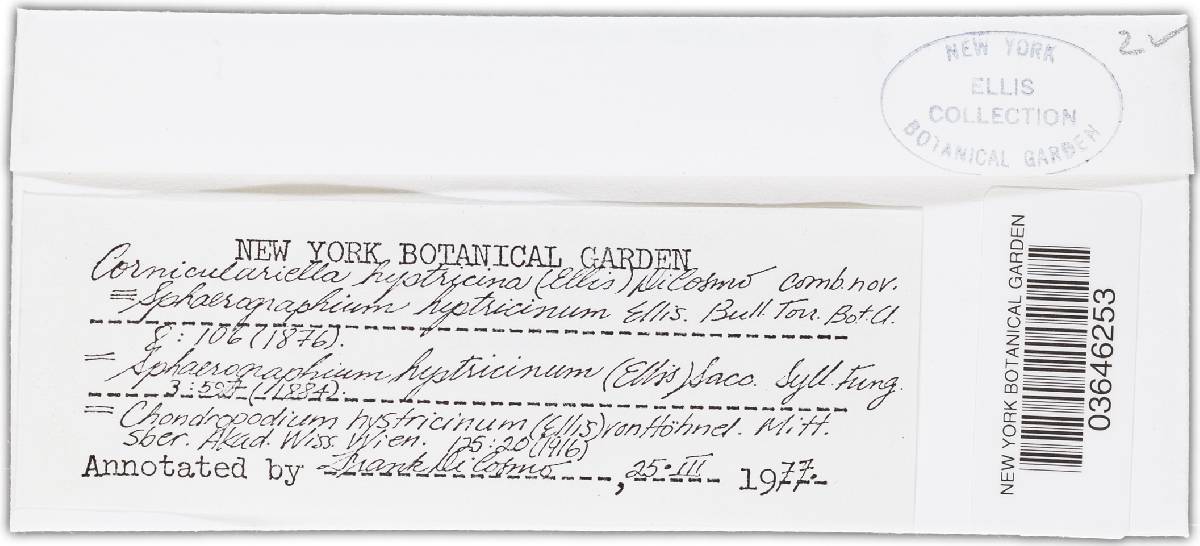 2 ✓
NEW YORK
ELLIS
COLLECTION
BOTANICAL GARDEN
NEW YORK BOTANICAL GARDEN
Corniculariella hystricina (Ellis) DiCosmo comb. nov.
= Sphaerographium hystricinum Ellis. Bull. Torr. Bot. Cl.
8: 106 (1876).
= Sphaerographium hystricinum (Ellis) Sacc. Syll. Fung.
3: (1884).
= Chondropodium hystricinum (Ellis) von Höhnel. Mitt.
Sber. Akad. Wiss. Wien. 125: 20 (1916)
Annotated by Frank DiCosmo, 25·III 1977.
NEW YORK BOTANICAL GARDEN
03646253